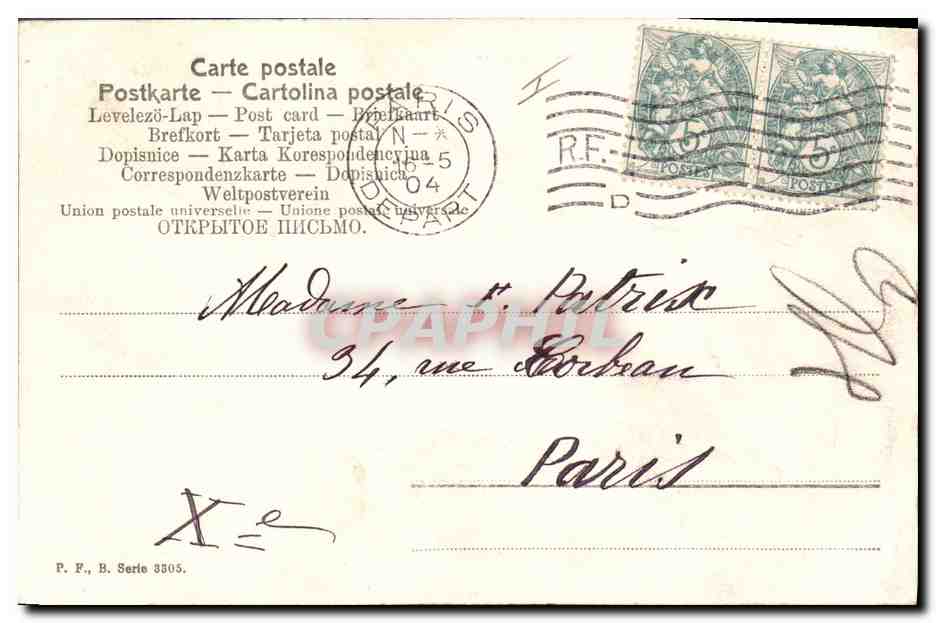 Carte postale
Postkarte — Cartolina postale
Levelező-Lap — Post card — Briefkaart
Brefkort — Tarjeta postal
Dopisnice — Karta Korespondencyjna
Correspondenzkarte — Dopisnica
Weltpostverein
Union postale universelle — Unione postale universale
ОТКРЫТОЕ ПИСЬМО.
PARIS
16-5
04
DEPART
R.F.
D
5
POSTES
5
POSTES
Madame F. Patrix
34, rue Corbeau
Paris
Xe
CPAPHIL
P. F., B. Serie 3305.